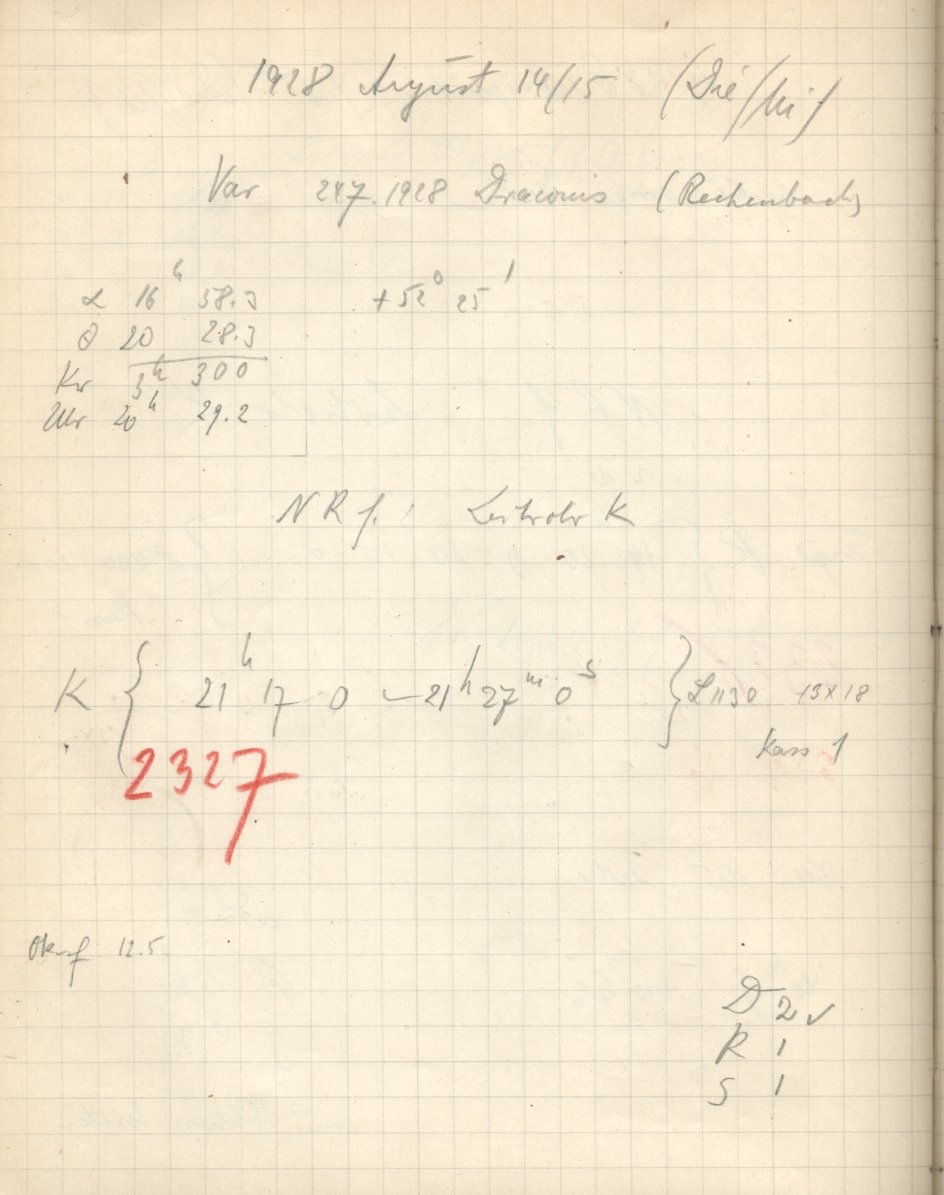 1928 August 14/15 (Die/Mi)
Var 247.1928 Draconis (Rechenbach)
α 16ʰ 58.3 +52° 25'
θ 20 28.3
Kr 3ʰ 30 0
Uhr 20ʰ 29.2
NRf. Leitrohr K
K { 21ʰ 17 0 – 21ʰ 27ᵐ 0ˢ } L1130 13x18
Kass 1
2327
Okul 12.5
D 2 ✓
R 1
S 1